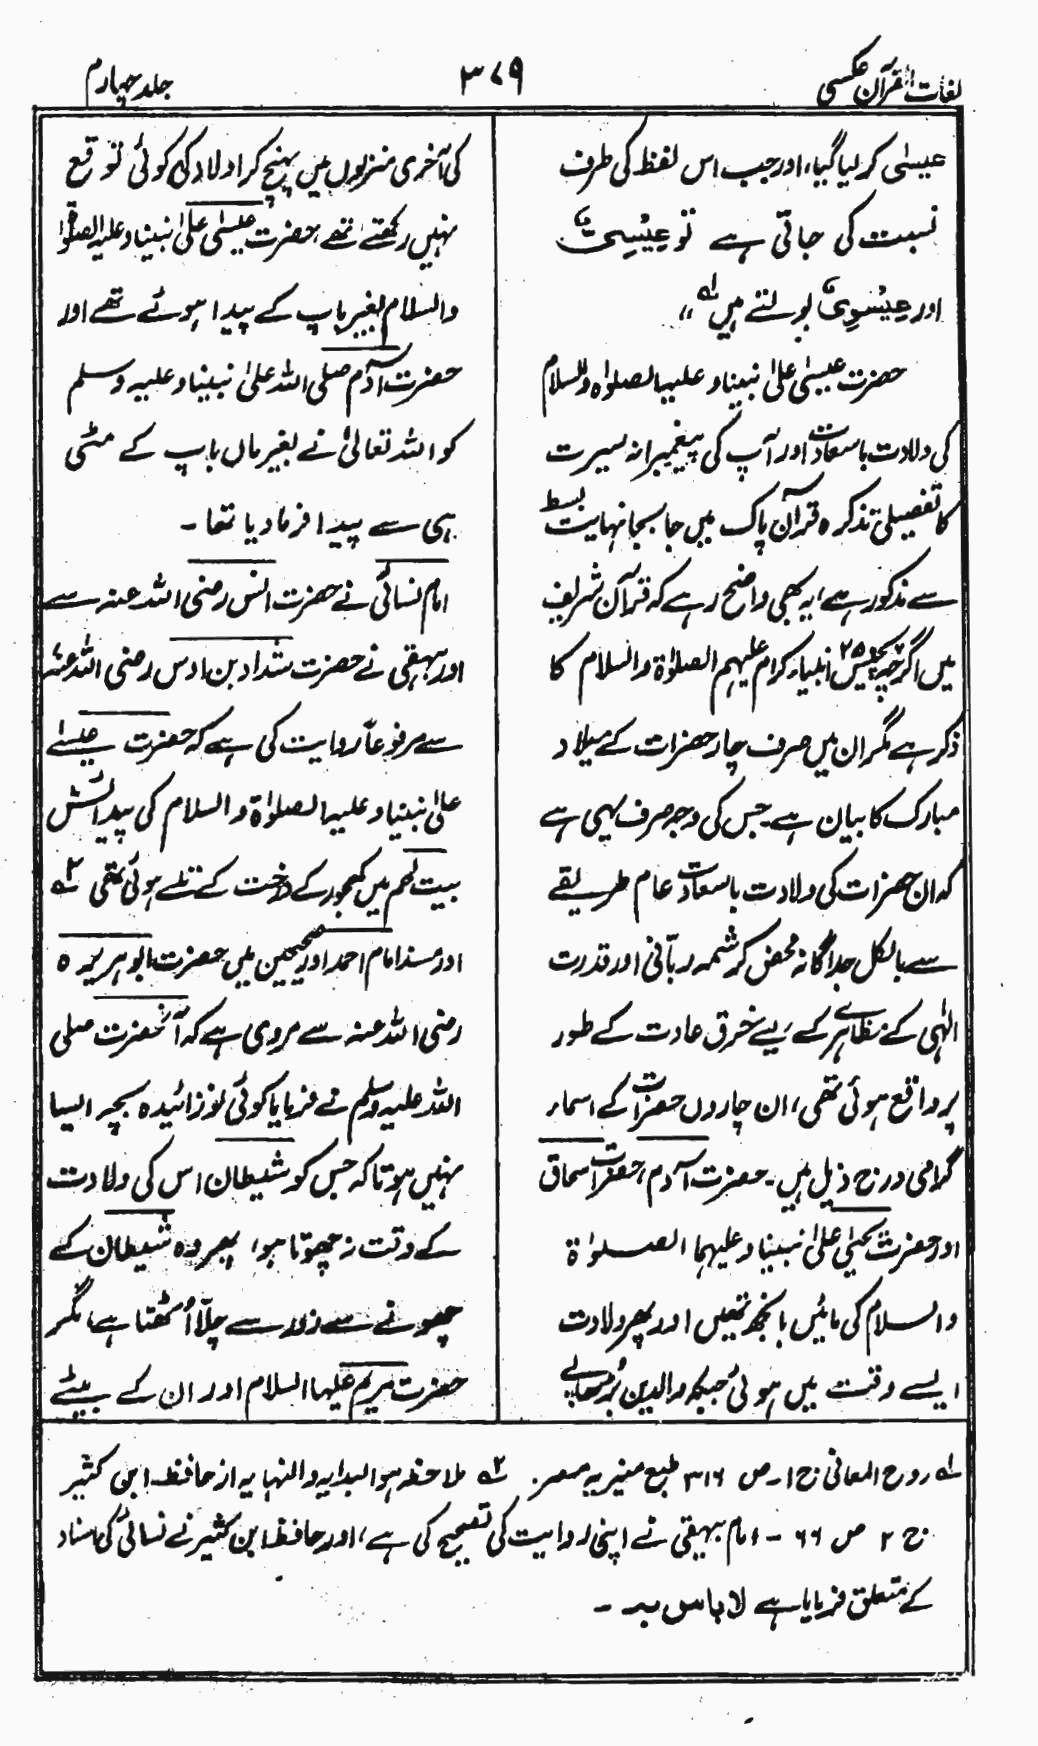 لغات القرآن عکسی
۳۷۹
جلد چہارم
عیسیٰ کر لیا گیا، اور جب اس لفظ کی طرف
نسبت کی جاتی ہے تو عِیْسِیٌّ
اور عِیْسَوِیٌّ بولتے ہیں لہ"
حضرت عیسیٰ علیٰ نبینا و علیہا لصلوٰۃ والسلام
کی ولادت باسعادت اور آپ کی پیغمبرانہ سیرت
کا تفصیلی تذکرہ قرآن پاک میں جا بجا نہایت بسط
سے مذکور ہے، یہ بھی واضح رہے کہ قرآن شریف
میں اگرچہ پچیس ۲۵ انبیاء کرام علیہم الصلوٰۃ والسلام کا
ذکر ہے مگر ان میں صرف چار حضرات کے میلاد
مبارک کا بیان ہے۔ جس کی وجہ صرف یہی ہے
کہ ان حضرات کی ولادت باسعادت عام طریقے
سے بالکل جداگانہ محض کرشمہ ربّانی اور قدرت
الٰہی کے نظارے کے لیے خرق عادت کے طور
پر واقع ہوئی تھی، ان چاروں حضرات کے اسماء
گرامی درج ذیل ہیں۔ حضرت آدم، حضرت اسحاق
اور حضرت یحییٰ علیٰ نبینا و علیہما الصلوٰۃ
والسلام کی مائیں بانجھ تھیں اور پھر ولادت
ایسے وقت میں ہوئی جبکہ والدین بُڑھاپے
کی آخری منزلوں میں پہنچ کر اولاد کی کوئی توقع
نہیں رکھتے تھے، حضرت عیسیٰ علیٰ نبینا و علیہ الصلوٰۃ
والسلام بغیر باپ کے پیدا ہوئے تھے اور
حضرت آدم صلی اللہ علیٰ نبینا و علیہ وسلم
کو اللہ تعالیٰ نے بغیر ماں باپ کے مٹی
ہی سے پیدا فرما دیا تھا۔
امام نسائی نے حضرت انس رضی اللہ عنہ سے
اور بیہقی نے حضرت شداد بن اوس رضی اللہ عنہ
سے مرفوعاً روایت کی ہے کہ حضرت عیسےٰ
علیٰ نبینا و علیہ الصلوٰۃ والسلام کی پیدائش
بیت لحم میں کھجور کے درخت کے تلے ہوئی تھی ۲ہ
اور مسند امام احمد اور صحیحین میں حضرت ابو ہریرہ
رضی اللہ عنہ سے مروی ہے کہ آنحضرت صلی
اللہ علیہ وسلم نے فرمایا کوئی نوزائیدہ بچہ ایسا
نہیں ہوتا کہ جس کو شیطان اس کی ولادت
کے وقت نہ چھوتا ہو، پھر وہ شیطان کے
چھونے سے زور سے چلّا اُٹھتا ہے، مگر
حضرت مریم علیہا السلام اور ان کے بیٹے
لہ روح المعانی ج ۱۔ ص ۳۱۶ طبع منیریہ مصر۔ ۲ہ ملاحظہ ہو البدایہ والنہایہ از حافظ ابن کثیر
ج ۲ ص ۶۶ ۔ امام بیہقی نے اپنی روایت کی تصحیح کی ہے، اور حافظ ابن کثیر نے نسائی کی اسناد
کے متعلق فرمایا ہے لا باس بہ ۔